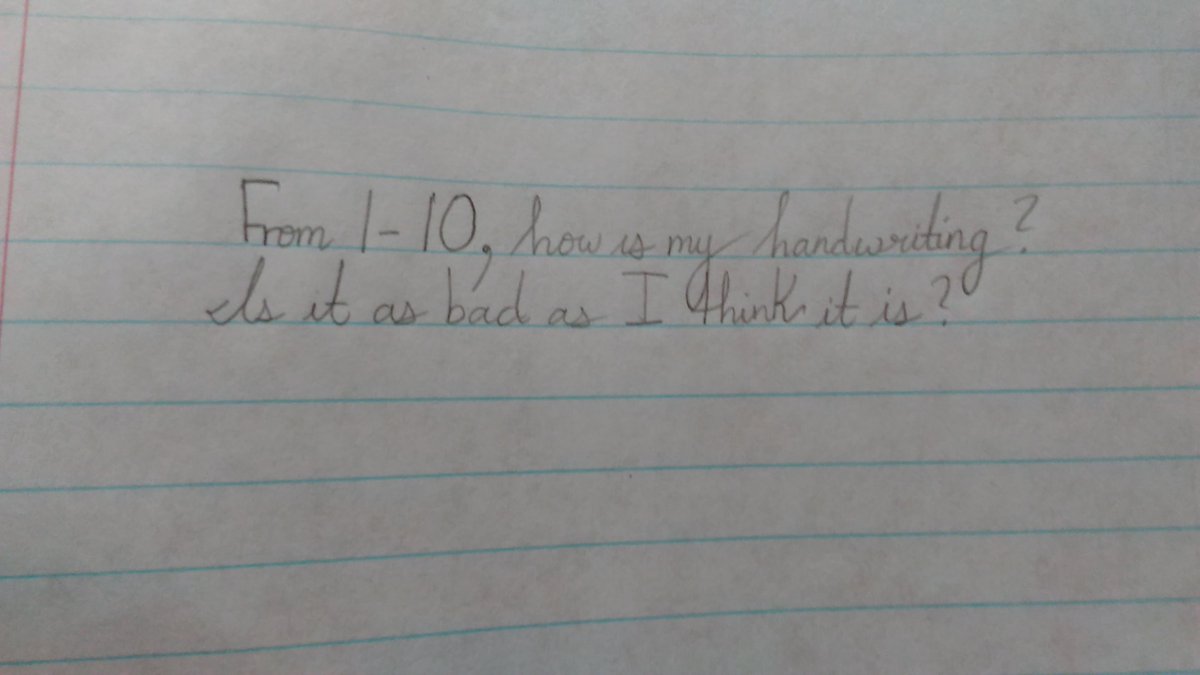 From 1-10, how is my handwriting?
Is it as bad as I think it is?